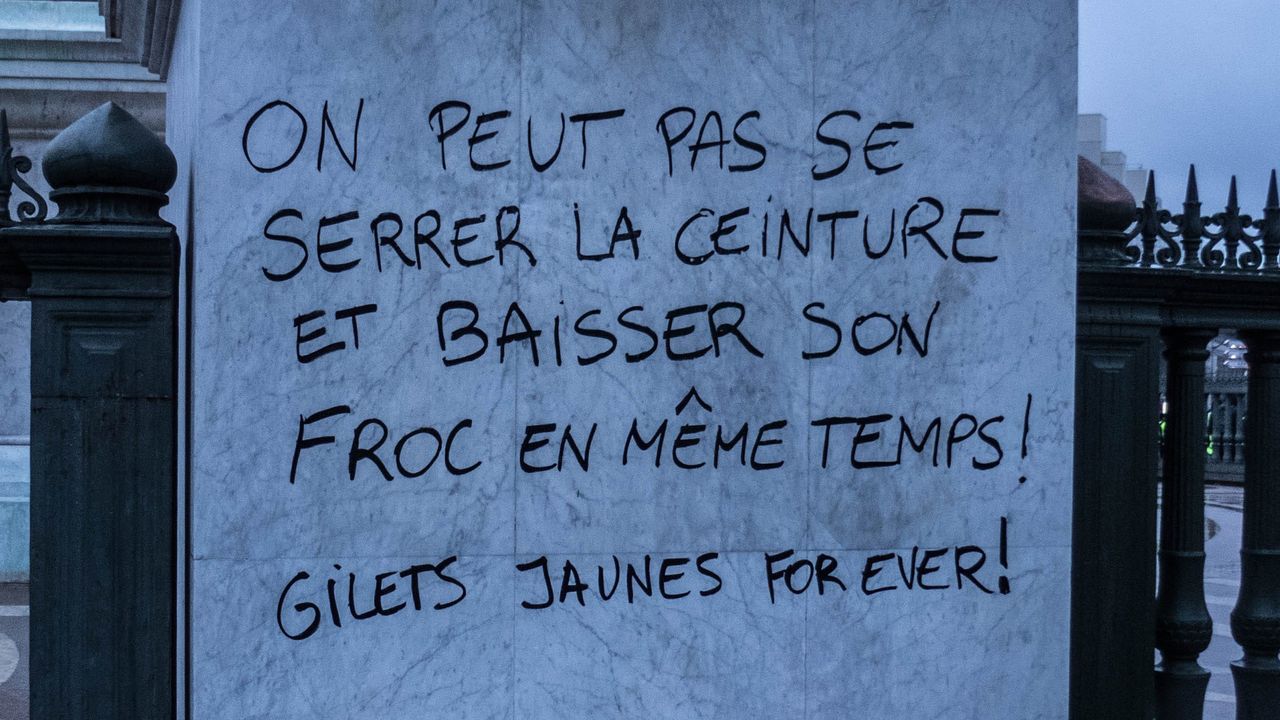 ON PEUT PAS SE
SERRER LA CEINTURE
ET BAISSER SON
FROC EN MÊME TEMPS!
GILETS JAUNES FOREVER!